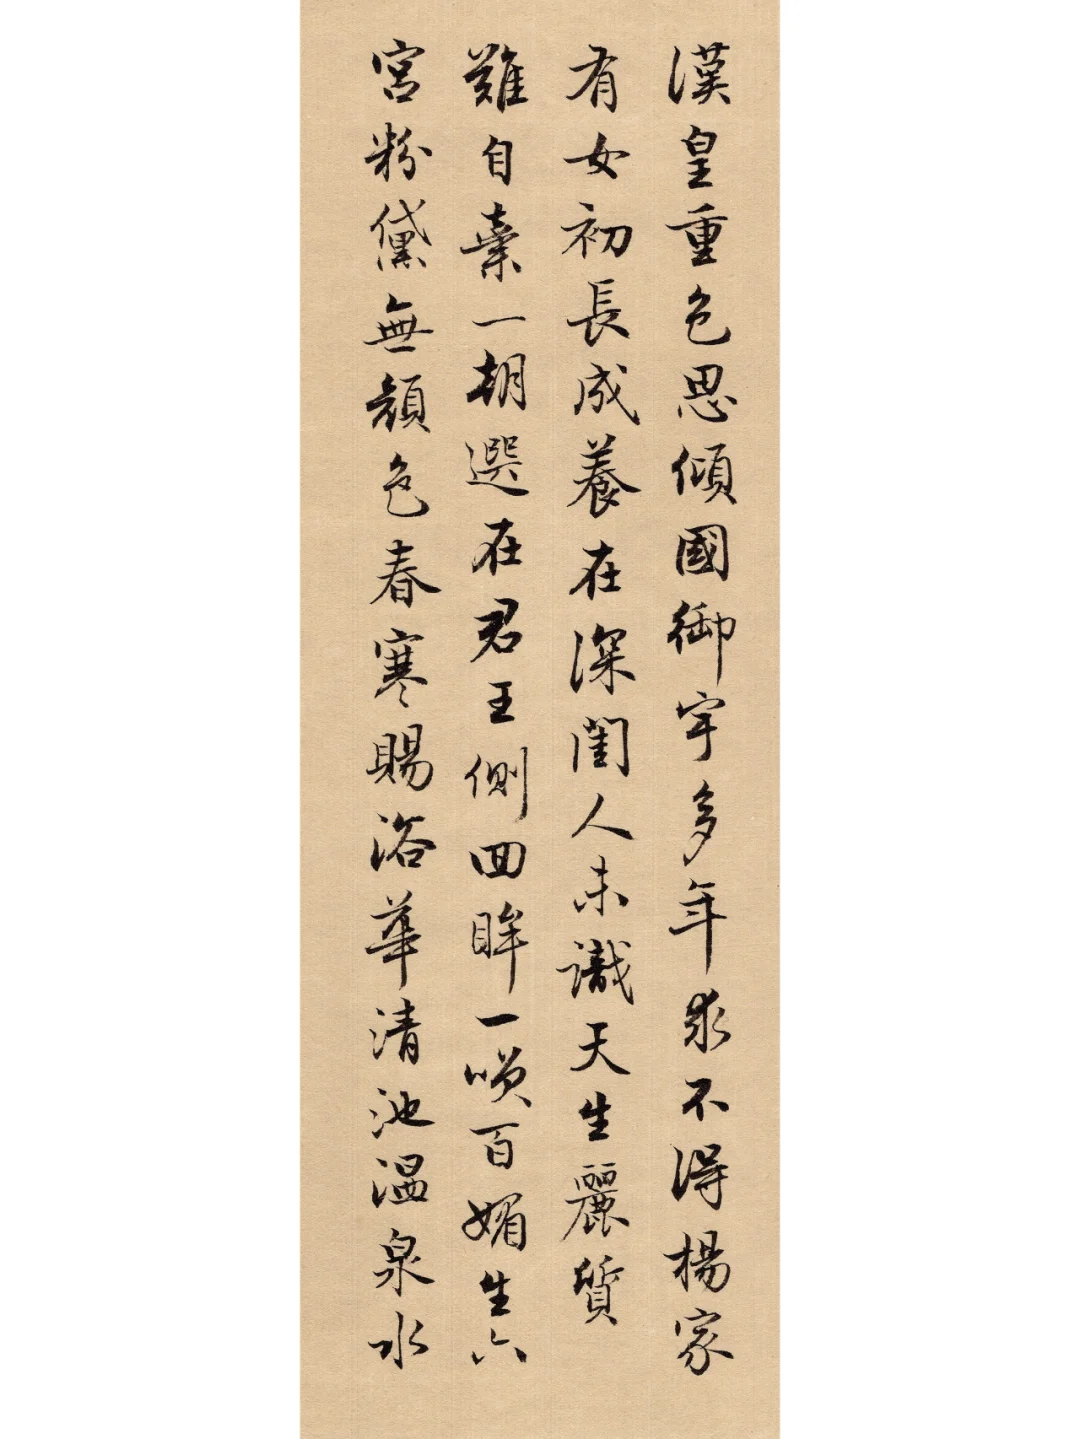 漢皇重色思傾國御宇多年求不得楊家
有女初長成養在深閨人未識天生麗質
難自棄一朝選在君王側回眸一笑百媚生六
宮粉黛無顏色春寒賜浴華清池溫泉水